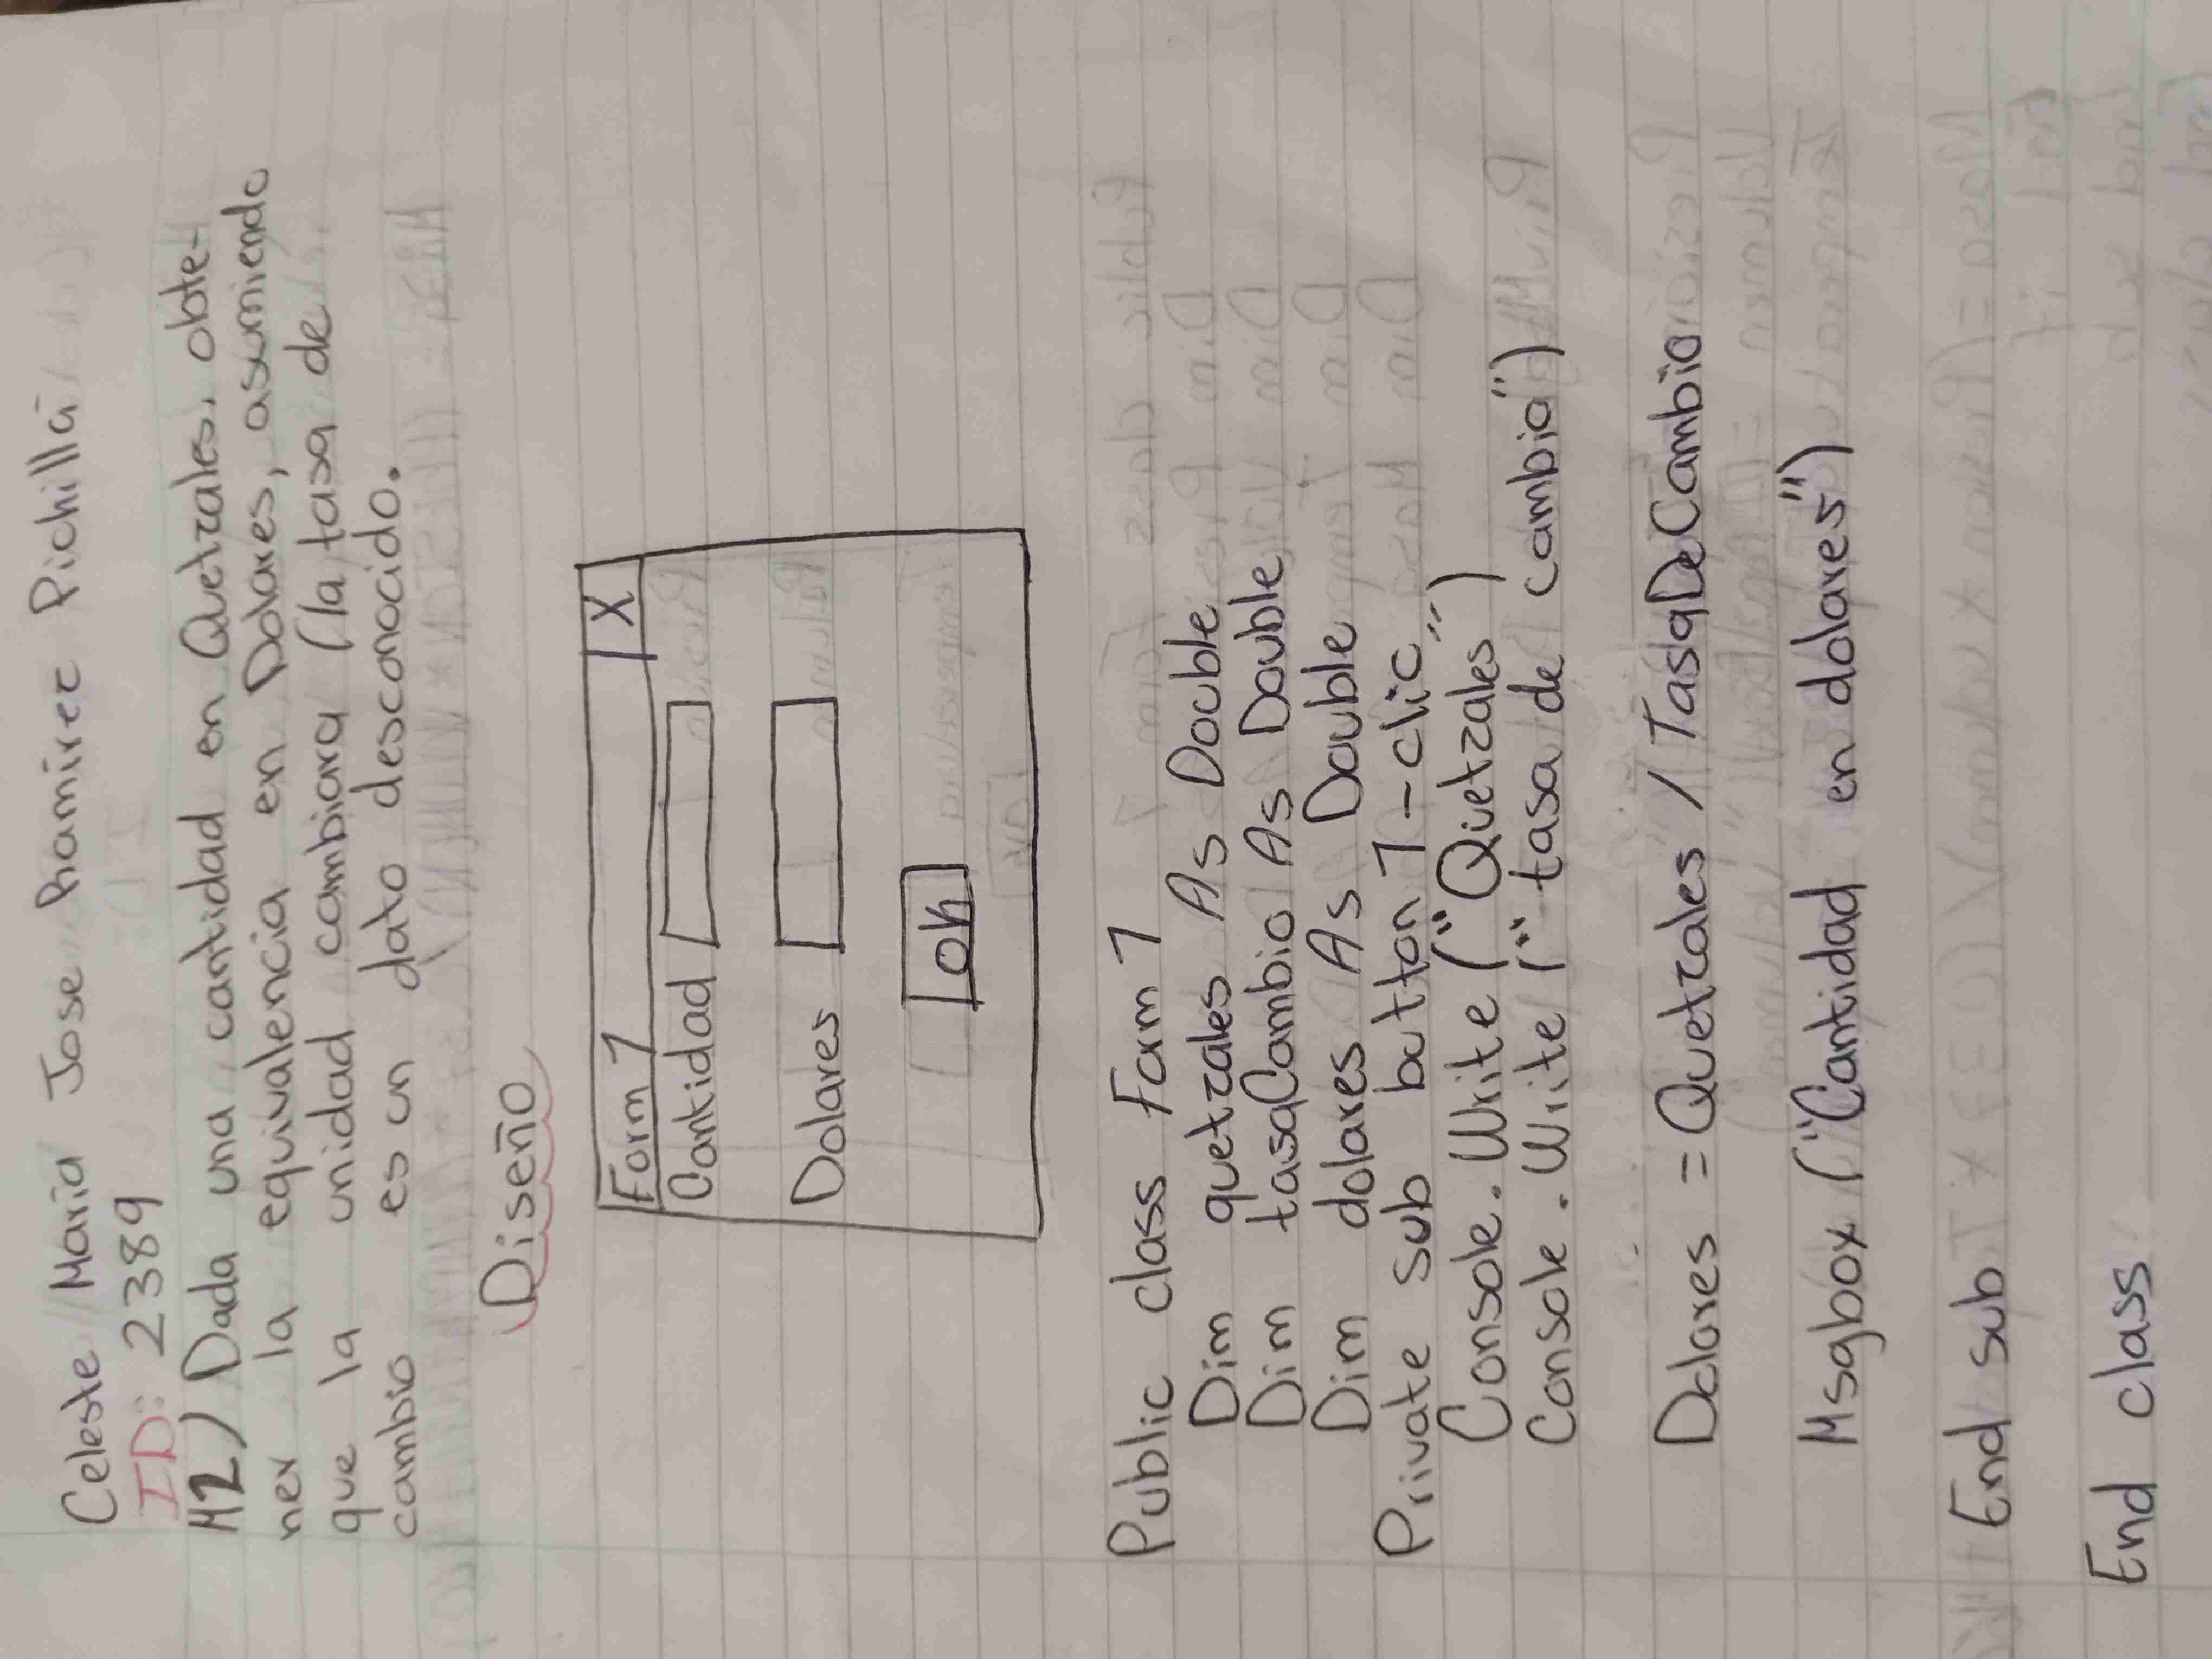 Celeste Maria Jose Ramirez Pichillá
ID: 2389
M2) Dada una cantidad en Quetzales, obte-
ner la equivalencia en Dolares, asumiendo
que la unidad cambiara (la tasa de
cambio es un dato desconocido.
Diseño
Form 1 X
Cantidad
Dolares
ok
Public class Form 1
Dim quetzales As Double
Dim tasaCambio As Double
Dim dolares As Double
Private sub button 1-clic
Console. Write ("Quetzales")
Console. Write ("tasa de cambio")
Dolares = Quetzales / TasaDeCambio
Msgbox ("Cantidad en dolares")
End sub
End class